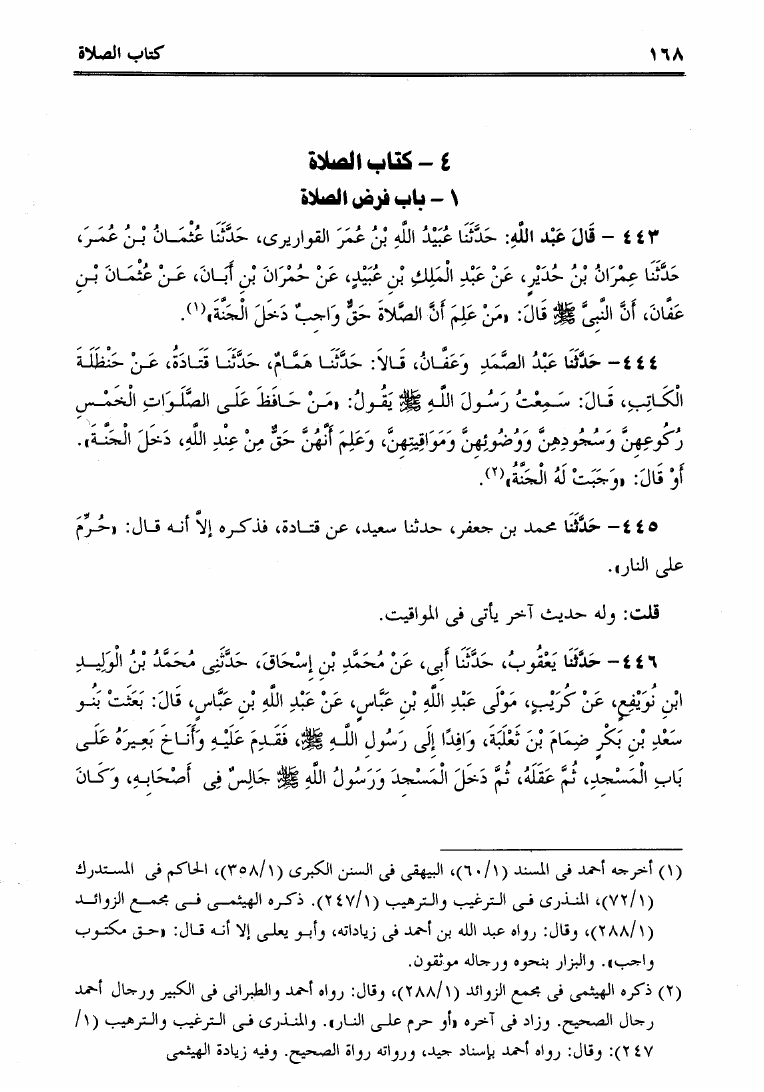 ١٦٨ كتاب الصلاة
٤ – كتاب الصلاة
١ – باب فرض الصلاة
٤٤٣ – قَالَ عَبْد اللَّهِ: حَدَّثَنَا عُبَيْدُ اللَّهِ بْنُ عُمَرَ القواريرى، حَدَّثَنَا عُثْمَـانُ بْـنُ عُمَـرَ،
حَدَّثَنَا عِمْرَانُ بْنُ حُدَيْرٍ، عَنْ عَبْدِ الْمَلِكِ بْنِ عُبَيْدٍ، عَنْ حُمْرَانَ بْنِ أَبَـانَ، عَـنْ عُثْمَـانَ بْـنِ
عَفَّانَ، أَنَّ النَّبِىَّ ﷺ قَالَ: «مَنْ عَلِمَ أَنَّ الصَّلاةَ حَقٌّ وَاجِبٌ دَخَلَ الْجَنَّةَ»(١).
٤٤٤ – حَدَّثَنَا عَبْدُ الصَّمَدِ وَعَفَّـانُ، قَـالاَ: حَدَّثَنَـا هَمَّـامٌ، حَدَّثَنَـا قَتَـادَةُ، عَـنْ حَنْظَلَـةَ
الْكَاتِبِ، قَـالَ: سَـمِعْتُ رَسُـولَ اللَّـهِ ﷺ يَقُـولُ: «مَـنْ حَـافَظَ عَلَـى الصَّلَـوَاتِ الْخَمْـسِ
رُكُوعِهِنَّ وَسُجُودِهِنَّ وَوُضُوئِهِنَّ وَمَوَاقِيتِهِنَّ، وَعَلِمَ أَنَّهُنَّ حَقٌّ مِنْ عِنْدِ اللَّهِ، دَخَلَ الْجَنَّـةَ».
أَوْ قَالَ: «وَجَبَتْ لَهُ الْجَنَّةُ»(٢).
٤٤٥ – حَدَّثَنَا محمد بن جعفر، حدثنا سعيد، عن قتـادة، فذكـره إلاَّ أنـه قـال: «حُـرِّمَ
على النار».
قلت: وله حديث آخر يأتى فى المواقيت.
٤٤٦ – حَدَّثَنَا يَعْقُوبُ، حَدَّثَنَا أَبِى، عَنْ مُحَمَّدِ بْنِ إِسْحَاقَ، حَدَّثَنِى مُحَمَّدُ بْنُ الْوَلِيـدِ
ابْنِ نُوَيْفِعٍ، عَنْ كُرَيْبٍ، مَوْلَى عَبْدِ اللَّهِ بْنِ عَبَّاسٍ، عَنْ عَبْدِ اللَّهِ بْنِ عَبَّاسٍ، قَالَ: بَعَثَتْ بَنُـو
سَعْدِ بْنِ بَكْرٍ ضِمَامَ بْنَ ثَعْلَبَةَ، وَافِدًا إِلَى رَسُولِ اللَّـهِ ﷺ، فَقَـدِمَ عَلَيْـهِ وَأَنَـاخَ بَعِـيرَهُ عَلَـى
بَابِ الْمَسْجِدِ، ثُمَّ عَقَلَهُ، ثُمَّ دَخَلَ الْمَسْجِدَ وَرَسُولُ اللَّهِ ﷺ جَالِسٌ فِى أَصْحَابِـهِ، وَكَـانَ
(١) أخرجه أحمد فى المسند (٦٠/١)، البيهقى فى السنن الكبرى (٣٥٨/١)، الحاكم فى المستدرك
(٧٢/١)، المنـذرى فـى الـترغيب والـترهيب (٢٤٧/١). ذكـره الهيثمـى فـى مجمـع الزوائـد
(٢٨٨/١)، وقال: رواه عبد الله بن أحمد فى زياداته، وأبـو يعلـى إلا أنـه قـال: «حـق مكتـوب
واجب». والبزار بنحوه ورجاله موثقون.
(٢) ذكره الهيثمى فى مجمع الزوائد (٢٨٨/١)، وقال: رواه أحمد والطبرانى فى الكبير ورجال أحمد
رجال الصحيح. وزاد فى آخره «أو حرم علـى النـار». والمنـذرى فـى الـترغيب والـترهيب (١/
٢٤٧): وقال: رواه أحمد بإسناد جيد، ورواته رواة الصحيح. وفيه زيادة الهيثمى